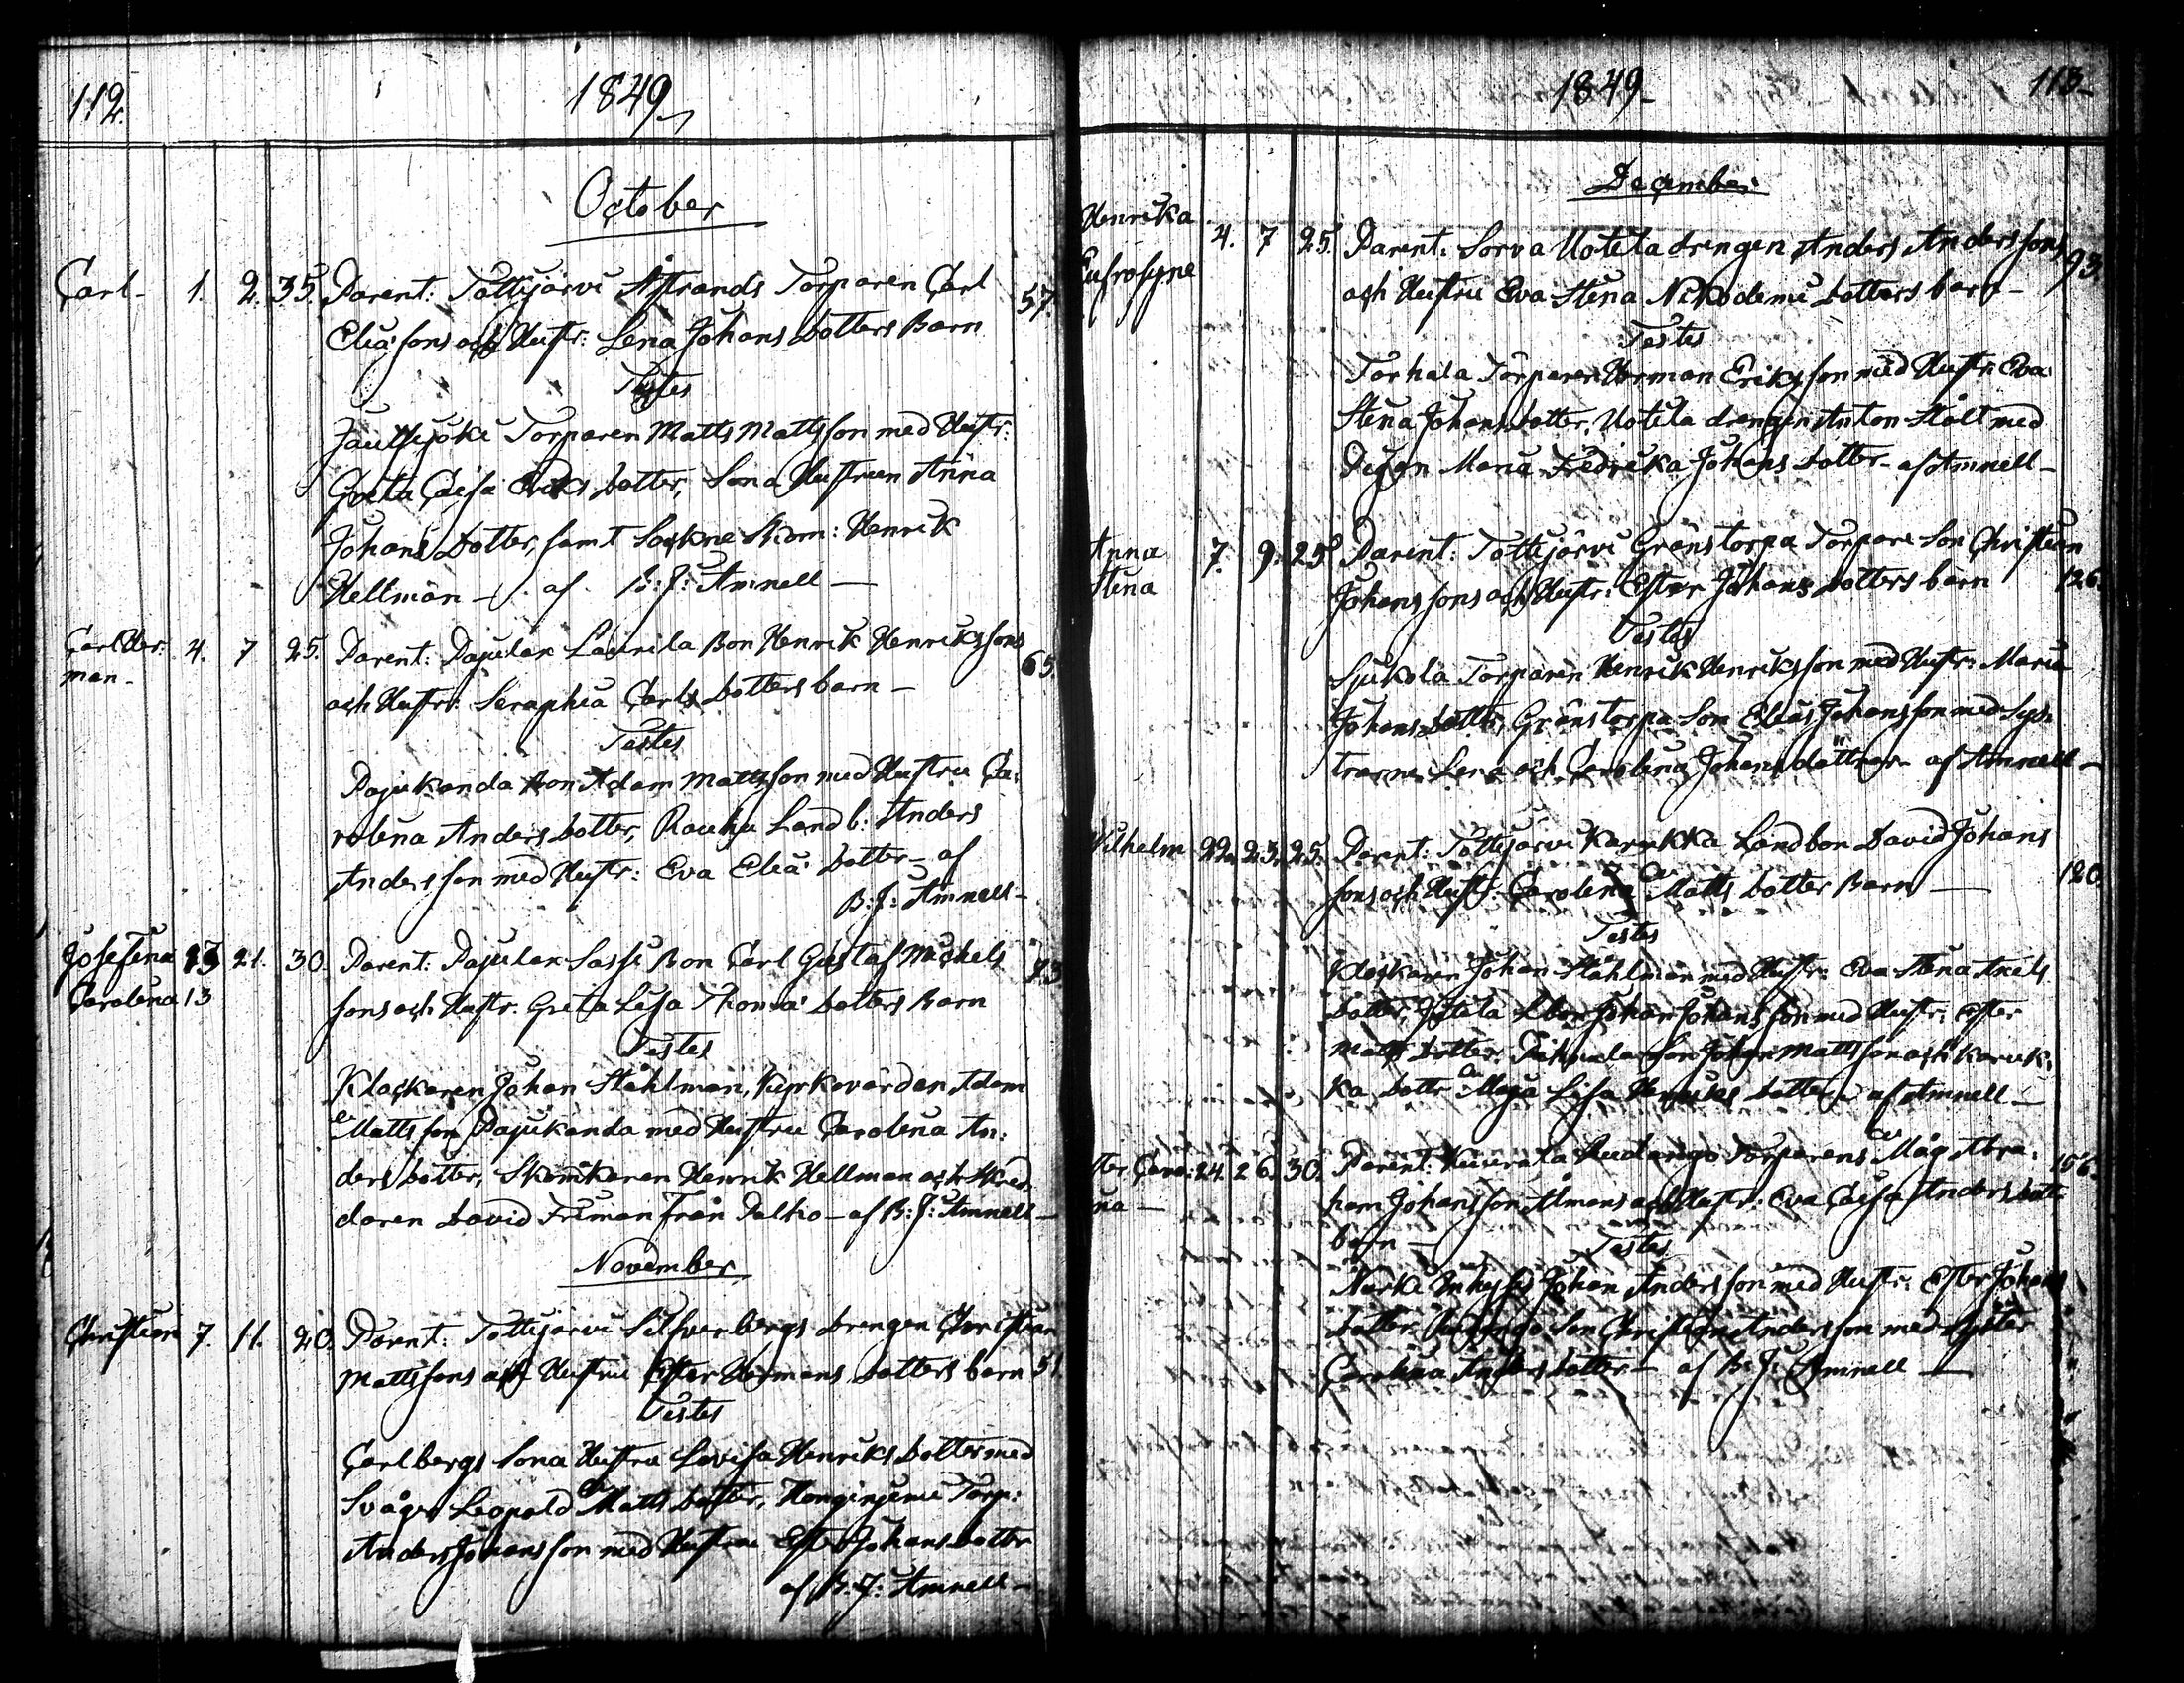 112.
1849
October
Carl 1. 2. 35. Parent: Tottijärvi Åstrands Torparen Carl 57.
Eliæ sons och Hustr: Lena Johans dotters Barn
Testes
Torparen Matts Mattsson med Hustr:
Greta Caisa Eriks dotter, Sona Hustrun Anna
Johans dotter, samt Sockne Skom: Henrik
Hellman — af B: J: Amnell —
Carl Her- 4. 7 25. Parent: Pajulax Laurila Bon Henrik Henrikssons 65.
man-
och Hustr: Seraphia Carls dotters barn —
Testes
Pajukanda Bon Adam Mattsson med Hustru Ca-
rolina Anders dotter, Rauhu Landb: Anders
Andersson med Hustr: Eva Eliæ dotter — af
B: J: Amnell —
Josefina 13 21. 30. Parent: Pajulax Sassi Bon Carl Gustaf Michels 73
Carolina 13
sons och Hustr: Greta Lisa Thomæ dotters Barn
Testes
Klockaren Johan Ståhlman, Kyrkovärden Adam
Mattsson Pajukanda med Hustru Carolina An-
ders dotter, Skomakaren Henrik Hellman och Skred-
daren David Friman från Palho — af B: J: Amnell —
November
Christian 7. 11. 20. Parent: Tottijärvi Silfverbergs Drengen Christian
Mattssons och Hustru Ester Hermans dotters barn 51
Testes
Carlbergs Sona Hustru Lovisa Henriks dotter med
Svåger Leopold Matts dotter, Honginjemi Torp:
Anders Johansson med Hustru Ester Johans dotter
af B. J: Amnell —
1849
113
December
Henrika
Eufrosyne
4. 7 25. Parent: Sorva Uotila drengen Anders Anderssons 93.
och Hustru Eva Stina Nikodemi dotters barn —
Testes
Torhala Torparen Herman Eriksson med Hustr: Eva
Stina Johans dotter, Uotila drengen Anton Stålt med
Pigan Maria Fredrika Johans dotter — af Amnell —
Anna 7. 9. 25 Parent: Tottijärvi Gränstorpa Torpare Son Christian
Stina
Johanssons och Hustr: Ester Johans dotters barn 126.
Testes
Sjukola Torparen Henrik Henriksson med Hustr: Maria
Johans dotter, Gränstorpa Son Elias Johansson med Sys-
trarne Lena och Carolina Johans döttrar — af Amnell —
Wilhelm 22. 23. 25. Parent: Tottijärvi Karukka Landbon David Johans
sons och Hustr: Carolina Matts dotter Barn — 120
Testes
Klockaren Johan Ståhlman med Hustr: Eva Stina Axels
dotter, Lbon Johan Johansson med Hustr: Ester
Matts dotter, Son Johan Mattsson och Karuk-
ka dottr Maja Lisa Henriks dotter — af Amnell —
Caro- 24. 26. 30. Parent: Torparens Måg Abra- 156.
ham Johansson Almans och Hustr: Eva Caisa Anders dott.
barn — Testes
Johan Andersson med Hustr: Ester Johans
dotter, Son Christian Andersson med Syster
Carolina Anders dotter — af B: J: Amnell —